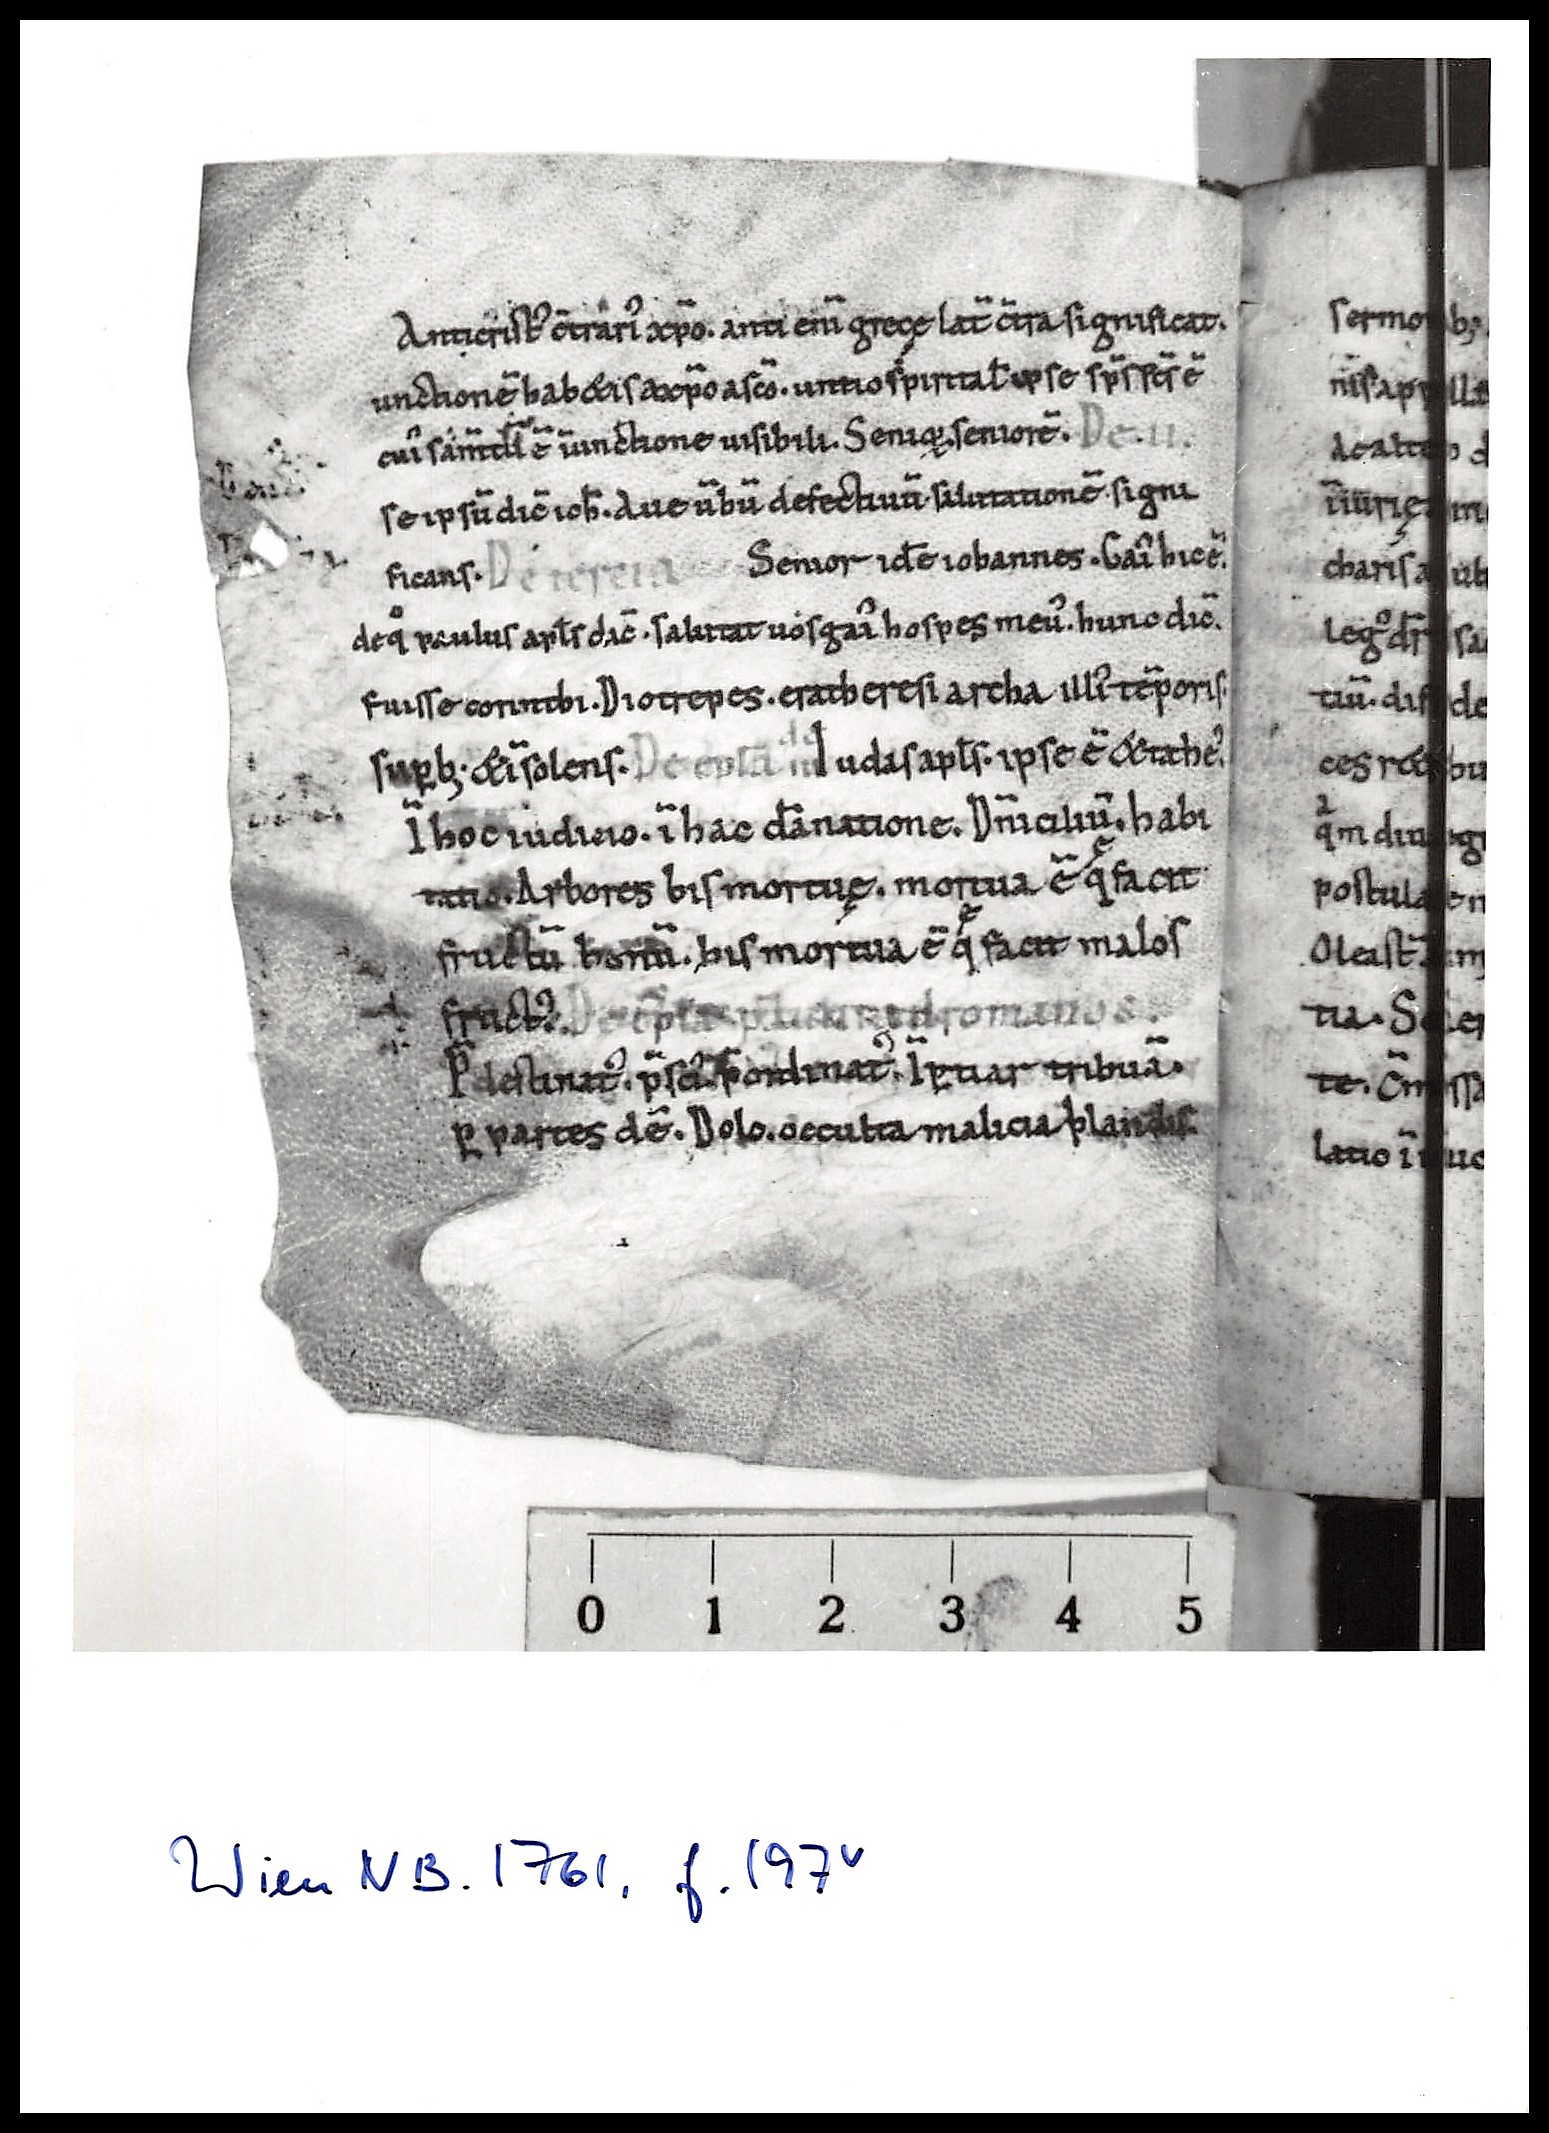 Anticrist᾽ c̄trari᾽ xp̄o. anti eni̅ grecę lat̄ c̄tra significat.
unctione̅ habetis a xp̄o a sc̄o. untio spirital᾽ ipse sp̄s sc̄s ē
cui᾽ ē i̅unctione uisibili. Seniorē. De .ii.
se ipsu̅ dic̄ ioh̄. Aue ūbu̅ defectiuu̅ salutatione̅ signi
ficans. De tercia Senior idē iohannes. Gai᾽ hic ē.
de qͦ paulus apl̄s dic̄. salutat uos gai᾽ hospes meu᾽. hunc dic̄.
fuisse corinthi. Diotrepes. erat heresi archa illi᾽ te̅poris
supb᾽. et i̅solens. De epla iudę Iudas apl̄s. ipse ē et tathe᾽.
I̅ hoc iudicio. i̅ hac da̅natione. Dm̄iciliu̅. habi
tatio. Arbores bis mortuę. mortua ē q̄ facit
fructu̅ bonu̅. bis mortua ē q̄ facit malos
fruct᾽. De ep̄la pauli ad romanos.
P̄destinat᾽. p̄sci᾽. p̄ordinat᾽. I̅ptiar tribua̅.
ꝑ partes dē. Dolo. occulta malicia blandis
sermo b;
nīs app lla
Ac alte o d
i̅iurię m
charis a ub
legͦ dr̄ sa
tiu̅. dis de
ces ret bu
qm diu gi
postula en
Oleast m
tia. S er
te. Cm̄ ssa
latio i̅ iuc
0 1 2 3 4 5
Wien NB. 1761, f. 197ᵛ